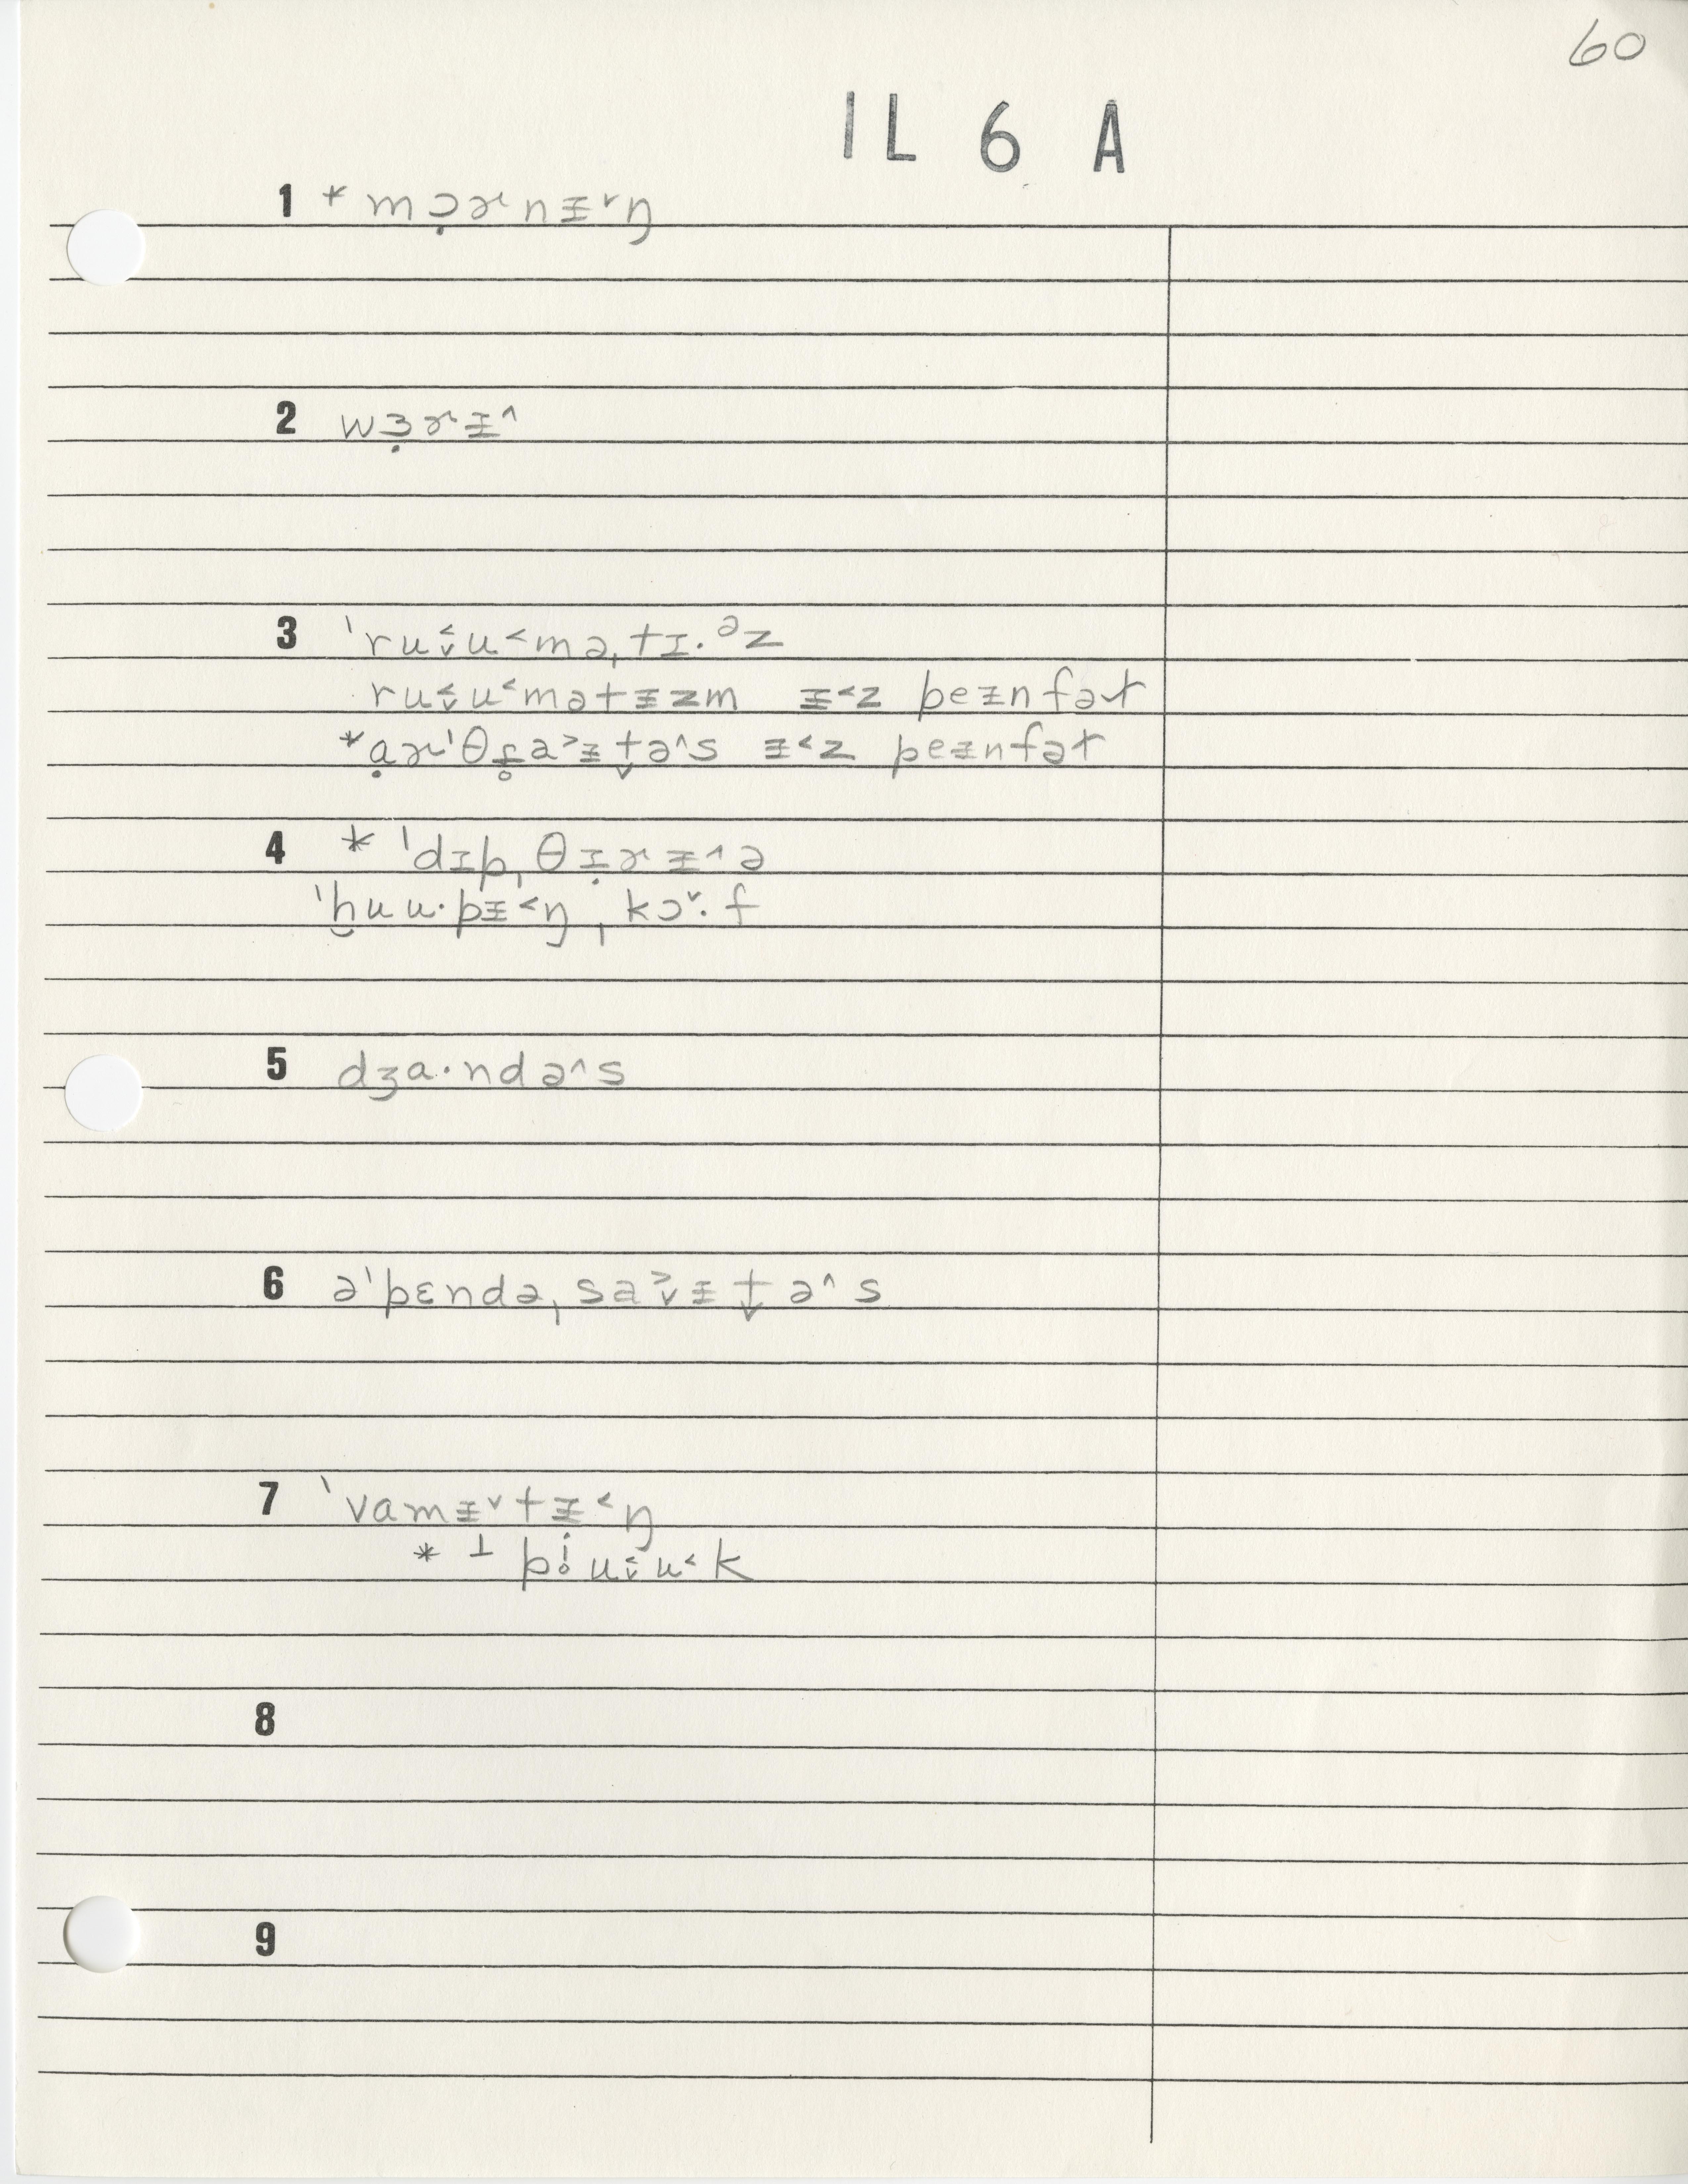 60
IL 6 A
1 * mɔ̣ɚnɪ̵˅ŋ
2 wɜ̣ɚɪ̵˄
3 ˈruu̬˂məˌtɪ·ᵊz
ruu̬˂mətɪ̵zm ɪ̵˂z peɪ̵nfəɫ
*ạɚˈθr̥a˃ɪ̵t̬ə˄s ɪ̵˂z peɪ̵nfəɫ
4 * ˈdɪpˌθɪ̣ɚɪ̵˄ə
ˈhuu·pɪ̵˂ŋ ˌkɔ˅·f
5 dʒa·ndə˄s
6 əˈpɛndəˌsa˃˅ɪ̵t̬ə˄s
7 ˈvamɪ̵˅tɪ̵˂ŋ
* ⊥ pi̥uu̬˂k
8
9